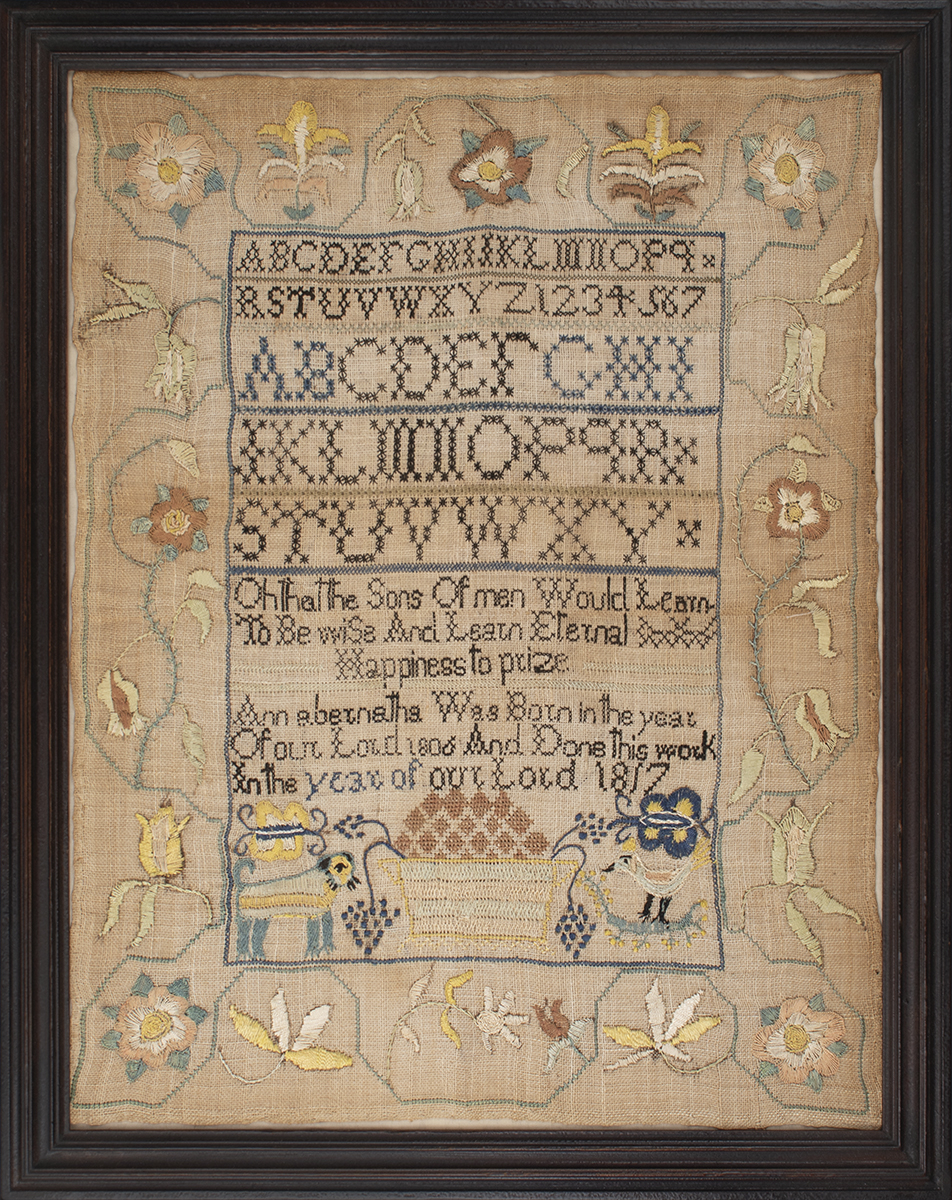 ABCDEFGHIJKLMNOPQ
RSTUVWXYZ1234567
ABCDEFGHI
JKLMNOPQR
STUVWXY
Oh that the Sons Of men Would Learn
To Be wise And Learn Eternal
Happiness to prize
Ann abernatha Was Born in the year
Of our Lord 1806 And Done this work
In the year of our Lord 1817